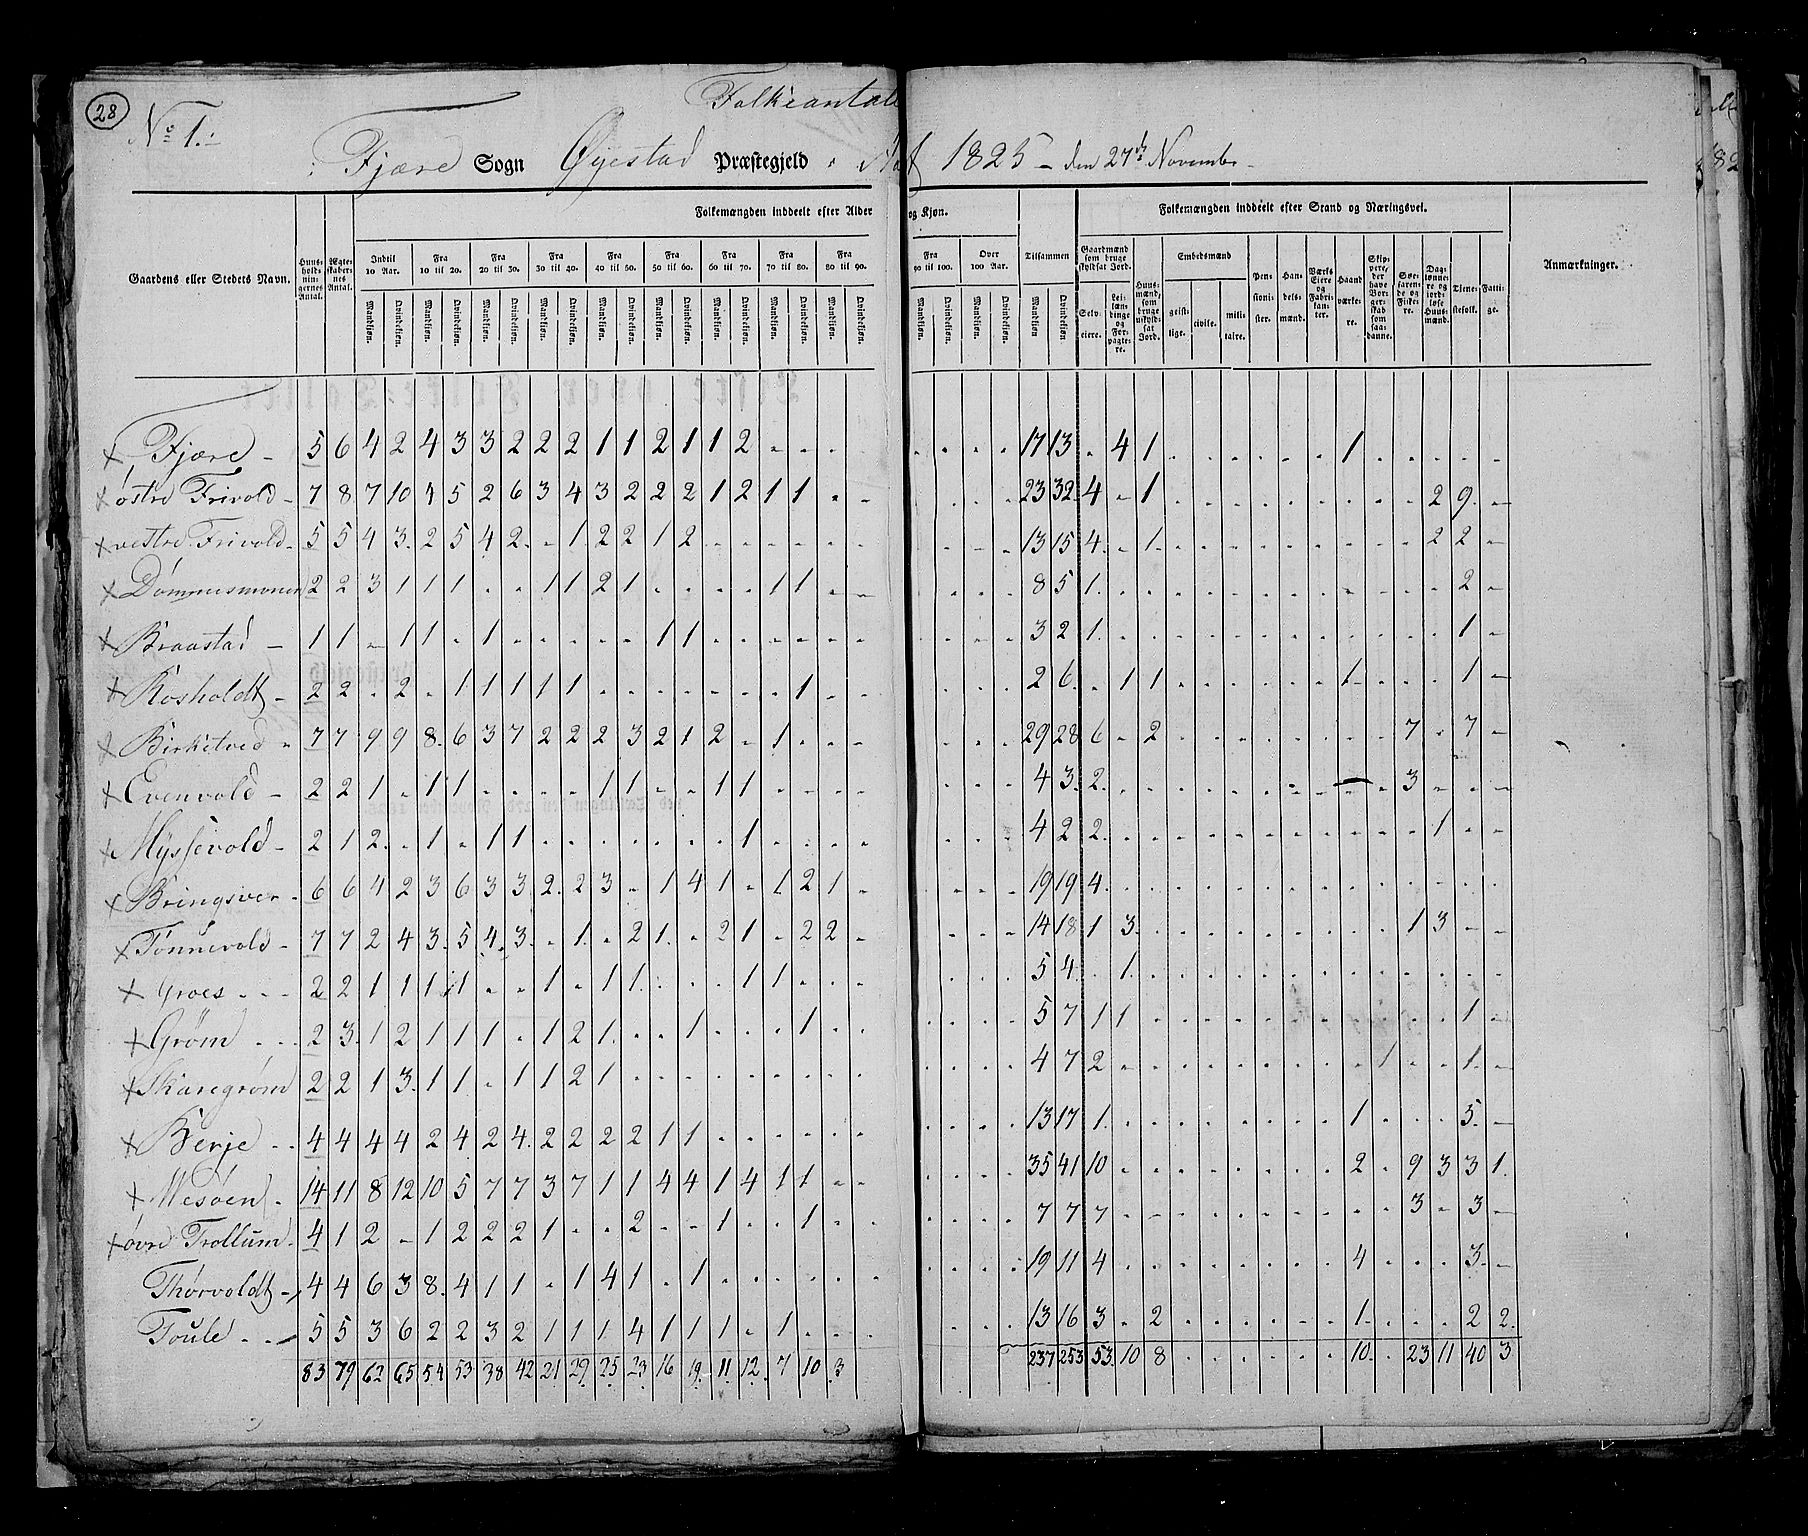 28
No 1.
Folkeantal
Fjære Sogn Øyestad Præstegjeld Aar 1825 den 27de November
Gaardens eller Stedets Navn. Huus-holdnin-gernes Antal. Ægte-skaber-nes Antal. Folkemængden inddeelt efter Alder og Kjøn. Tilsammen Folkemængden inddeelt efter Stand og Næringsvei. Anmærkninger.
Indtil 10 Aar. Fra 10 til 20. Fra 20 til 30. Fra 30 til 40. Fra 40 til 50. Fra 50 til 60. Fra 60 til 70. Fra 70 til 80. Fra 80 til 90. Fra 90 til 100. Over 100 Aar.
Gaardmænd som bruge skyldsat Jord. Huus-mænd, som bruge uskyldsat Jord. Embedsmænd Pen-sioni-ster. Han-dels-mænd. Værks Eiere og Fabri-kan-ter. Haand værke-re. Skip-pere, der have Bor-ger-skab som saa-danne. Søe-farende og Fiske-re. Dag-lønne-re og jord-løse Huus-mænd. Tjene-stefolk. Fatti-ge.
Mandkjøn. Qvindekjøn. Selv-eiere. Lei-læn-dinge og For-pagte-re. geist-lige. civile. mili-taire.
Fjære 5 6 4 2 4 3 3 2 2 2 1 1 2 1 1 2 17 13 4 1 1
østre Frivold 7 8 7 10 4 5 2 6 3 4 3 2 2 2 1 2 1 1 23 32 4 1 2 9
vestre Frivold 5 5 4 3 2 5 4 2 1 2 2 1 2 13 15 4 1 2 2
Dømmesmoen 2 2 3 1 1 1 1 1 2 1 1 1 8 5 1 2
Braastad 1 1 1 1 1 1 1 3 2 1 1
Rosholdt 2 2 2 1 1 1 1 1 1 2 6 1 1 1 1
Birketved 7 7 9 9 8 6 3 7 2 2 2 3 2 1 2 1 29 28 6 2 7 7
Evenvold 2 2 1 1 1 1 1 1 1 4 3 2 3
Myssevold 2 1 2 1 1 1 1 4 2 2 1
Bringsver 6 6 4 2 3 6 3 3 2 2 3 1 4 1 1 2 1 19 19 4
Tønnevold 7 7 2 4 3 5 4 3 1 2 1 2 1 2 2 14 18 1 3 1 3
Groes 2 2 1 1 1 1 1 1 1 1 1 5 4 1
Grøm 2 3 1 2 1 1 1 1 2 1 1 1 5 7 1 1 1
Skaregrøm 2 2 1 3 1 1 1 1 2 1 4 7 2 1 1
Berje 4 4 4 4 2 4 2 4 2 2 2 2 1 1 13 17 1 1 5
Mesøen 14 11 8 12 10 5 7 7 3 7 1 1 4 4 1 4 1 1 35 41 10 2 9 3 3 1
øvre Trollum 4 1 2 1 2 2 2 1 2 1 1 7 7 7 3 3
Thørvoldt 4 4 6 3 8 4 1 1 1 4 1 1 19 11 4 4 3
Toule 5 5 3 6 2 2 3 2 1 1 1 4 1 1 1 1 13 16 3 2 1 2 2
83 79 62 65 54 53 38 42 21 29 25 23 16 19 11 12 7 10 3 237 253 53 10 8 10 23 11 40 3